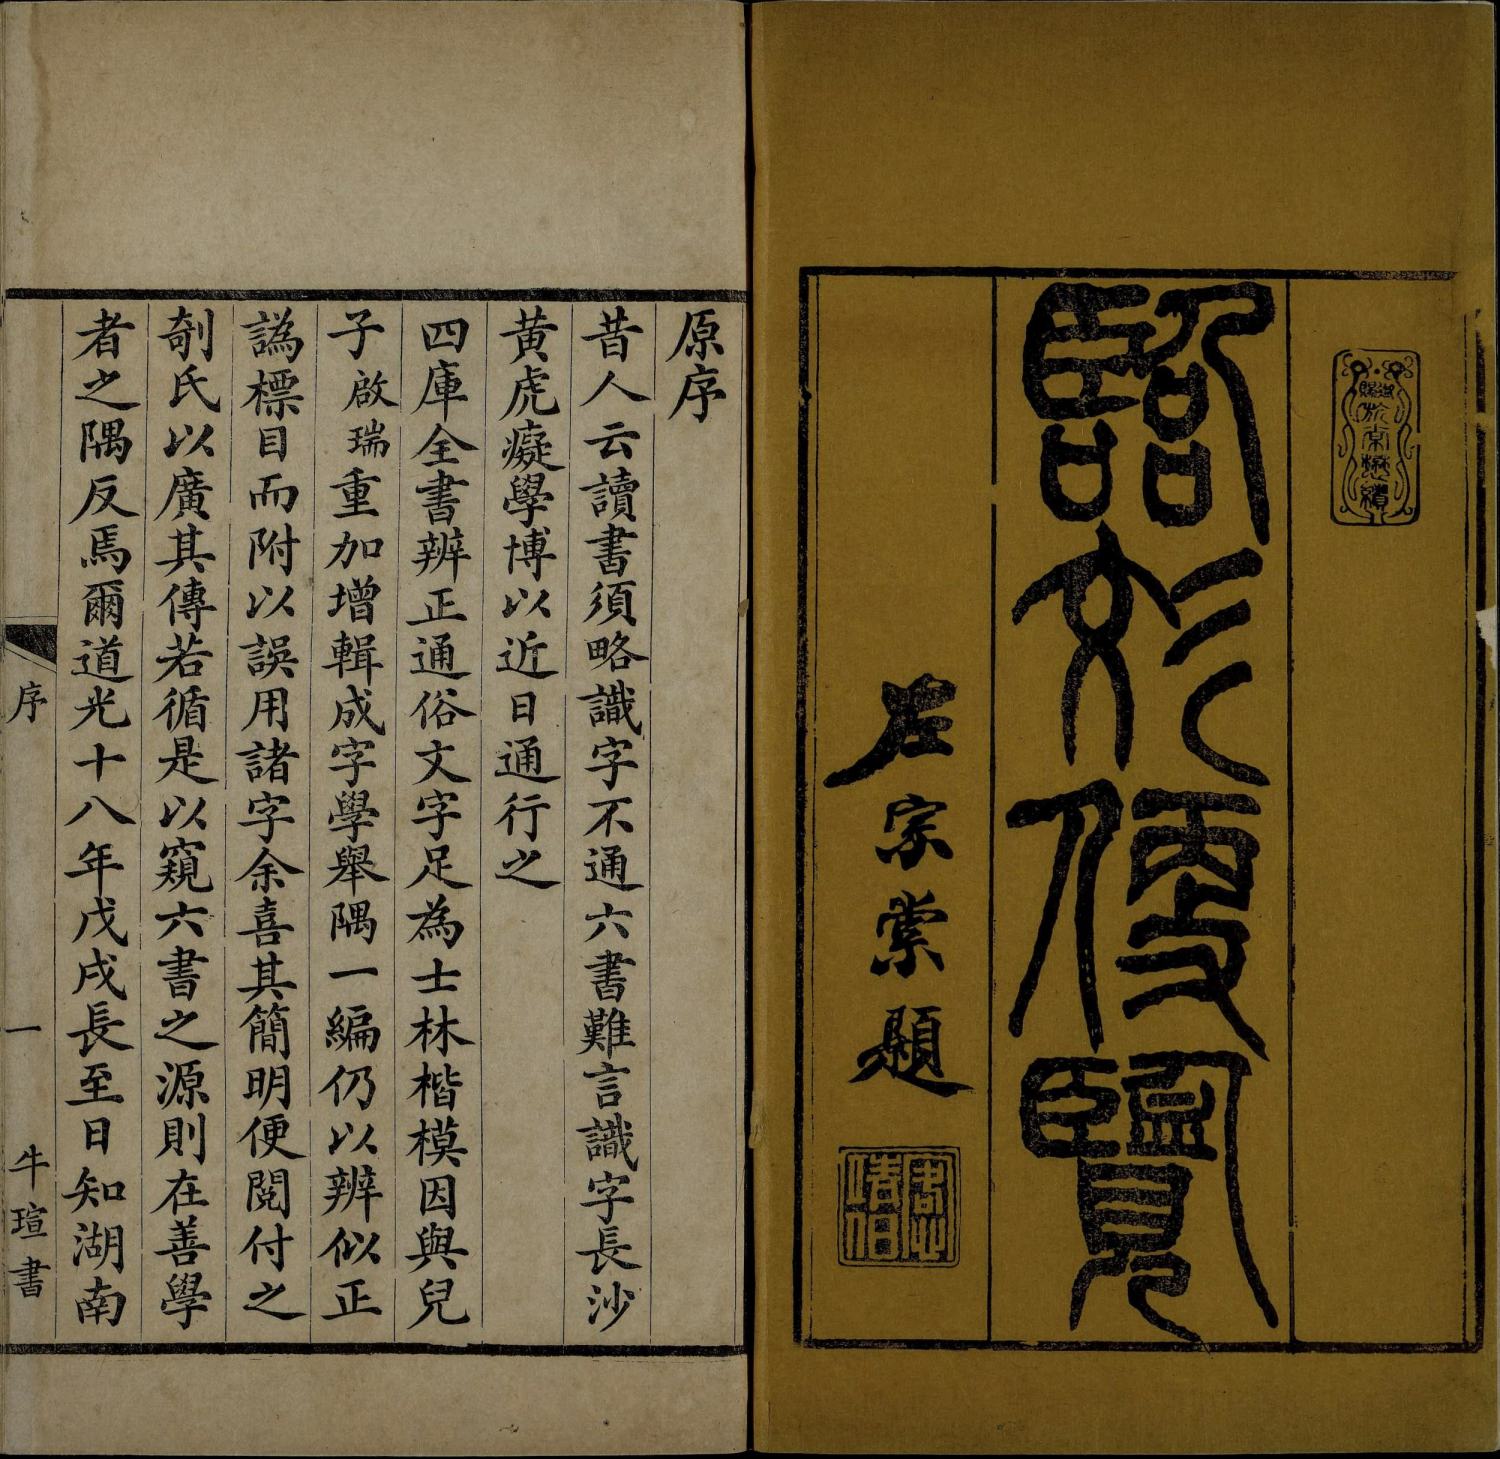 御賜旂常懋績
臨彣便覽
左宗棠題
原序
昔人云讀書須略識字不通六書難言識字長沙
黃虎癡學博以近日通行之
四庫全書辨正通俗文字足為士林楷模因與兒
子啟瑞重加增輯成字學舉隅一編仍以辨似正
譌標目而附以誤用諸字余喜其簡明便閱付之
剞氏以廣其傳若循是以窺六書之源則在善學
者之隅反焉爾道光十八年戊戌長至日知湖南
序 一 牛瑄書